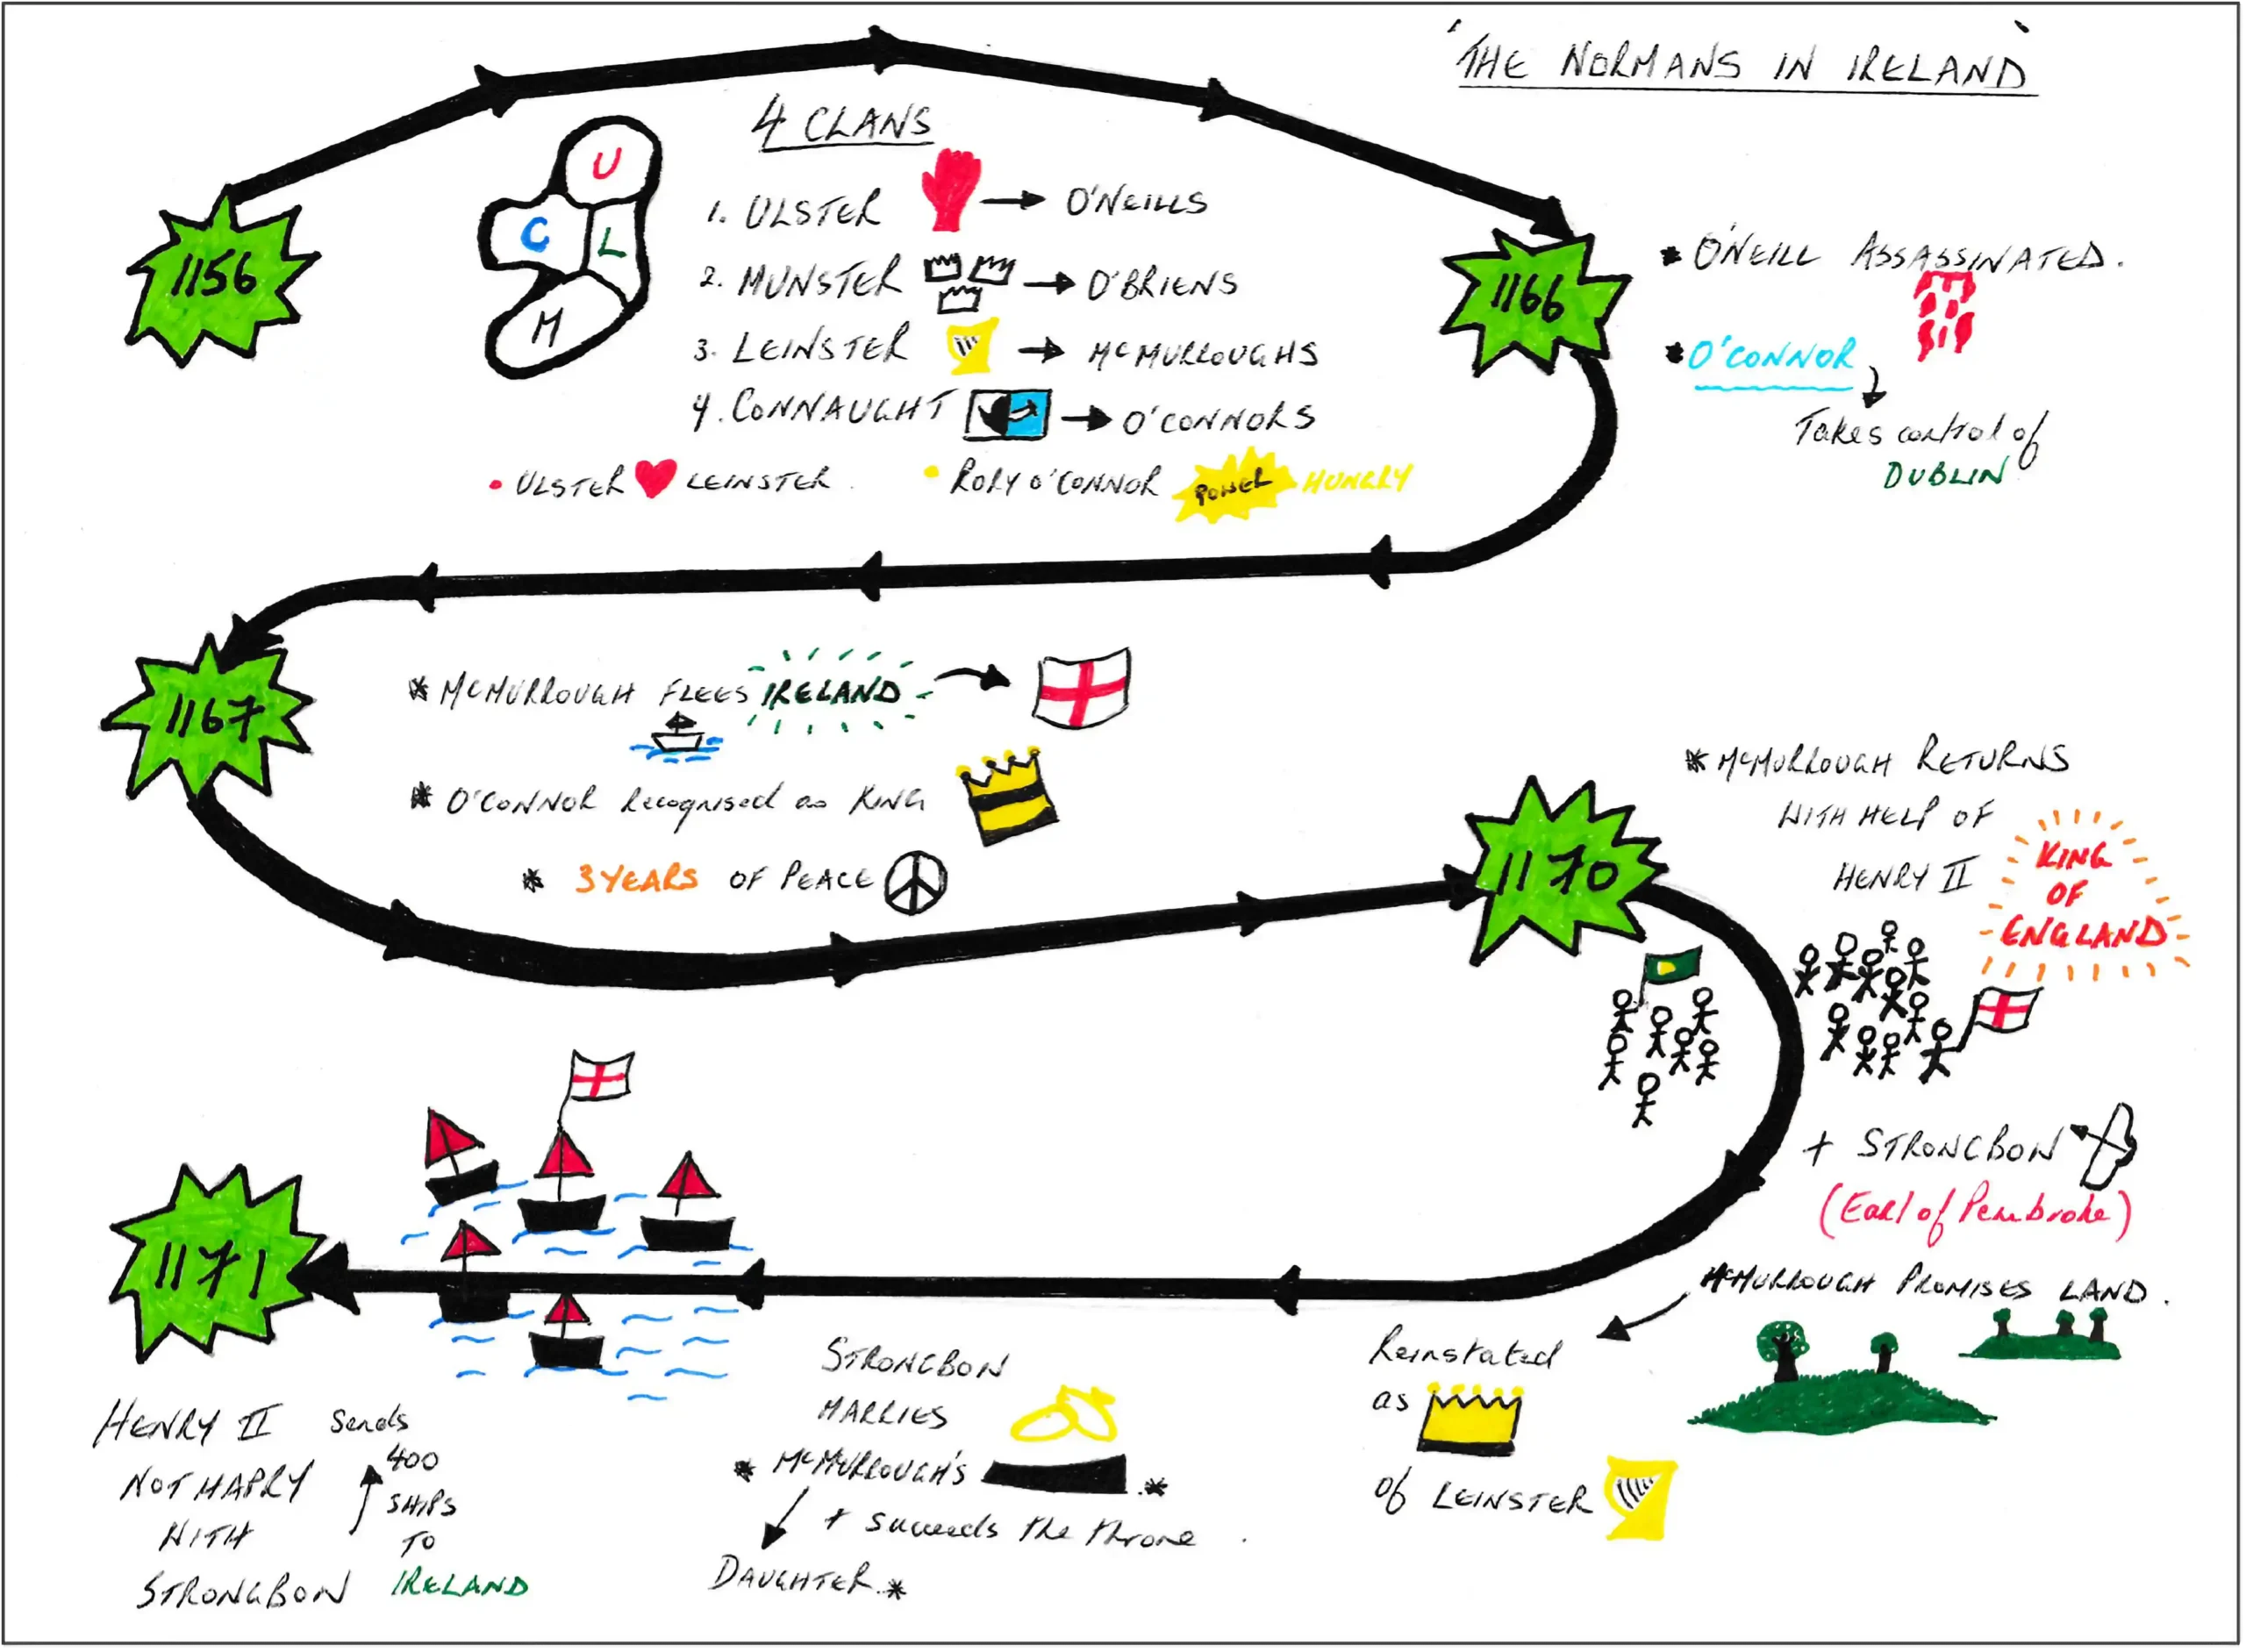 'THE NORMANS IN IRELAND'
1156
4 CLANS
U
C
L
M
1. ULSTER → O'NEILLS
2. MUNSTER → O'BRIENS
3. LEINSTER → McMURROUGHS
4. CONNAUGHT → O'CONNORS
• ULSTER ♥ LEINSTER.
• RORY O'CONNOR POWER HUNGRY
1166
* O'NEILL ASSASSINATED.
* O'CONNOR
Takes control of
DUBLIN
1167
* McMURROUGH FLEES IRELAND
* O'CONNOR Recognised as KING
* 3 YEARS OF PEACE
1170
* McMURROUGH RETURNS
WITH HELP OF
HENRY II
KING
OF
ENGLAND
+ STRONGBOW
(Earl of Pembroke)
McMURROUGH PROMISES LAND.
Reinstated
as
of LEINSTER
STRONGBOW
MARRIES
* McMURROUGH'S *
+ succeeds the throne.
DAUGHTER.*
1171
HENRY II
NOT HAPPY
WITH
STRONGBOW
Sends
400
SHIPS
TO
IRELAND